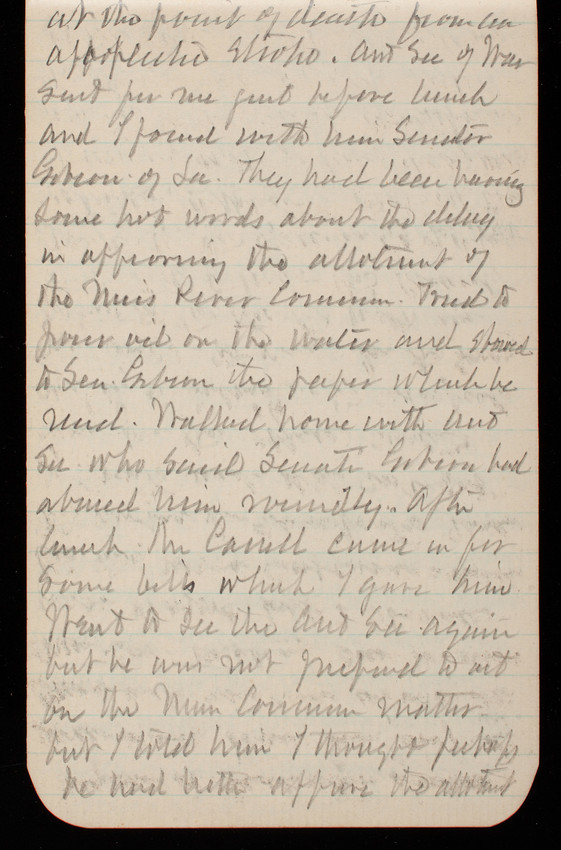 at the point of death from an
apoplectic stroke. Asst Sec of War
sent for me just before lunch
and I found with him Senator
Gibson of La. They had been having
some hot words about the delay
in approving the allotment of
the Miss River Commn. Tried to
pour oil on the water and showed
to Sen. Gibson the paper which he
read. Walked home with Asst
Sec who said Senator Gibson had
abused him roundly. After
lunch Mr Cassell came in for
some bills which I gave him
Went to see the Asst Sec again
but he was not prepared to act
on the Miss Commn matter
but I told him I thought perhaps
he had better approve the allotmt